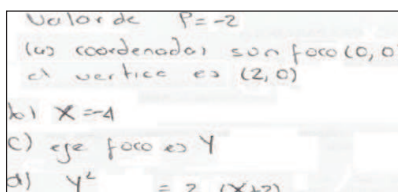 Valor de P=-2
las coordenadas son foco (0,0
el vertice es (2,0)
b) X=-4
c) eje foco es Y
d) y² = 2 (x+2)